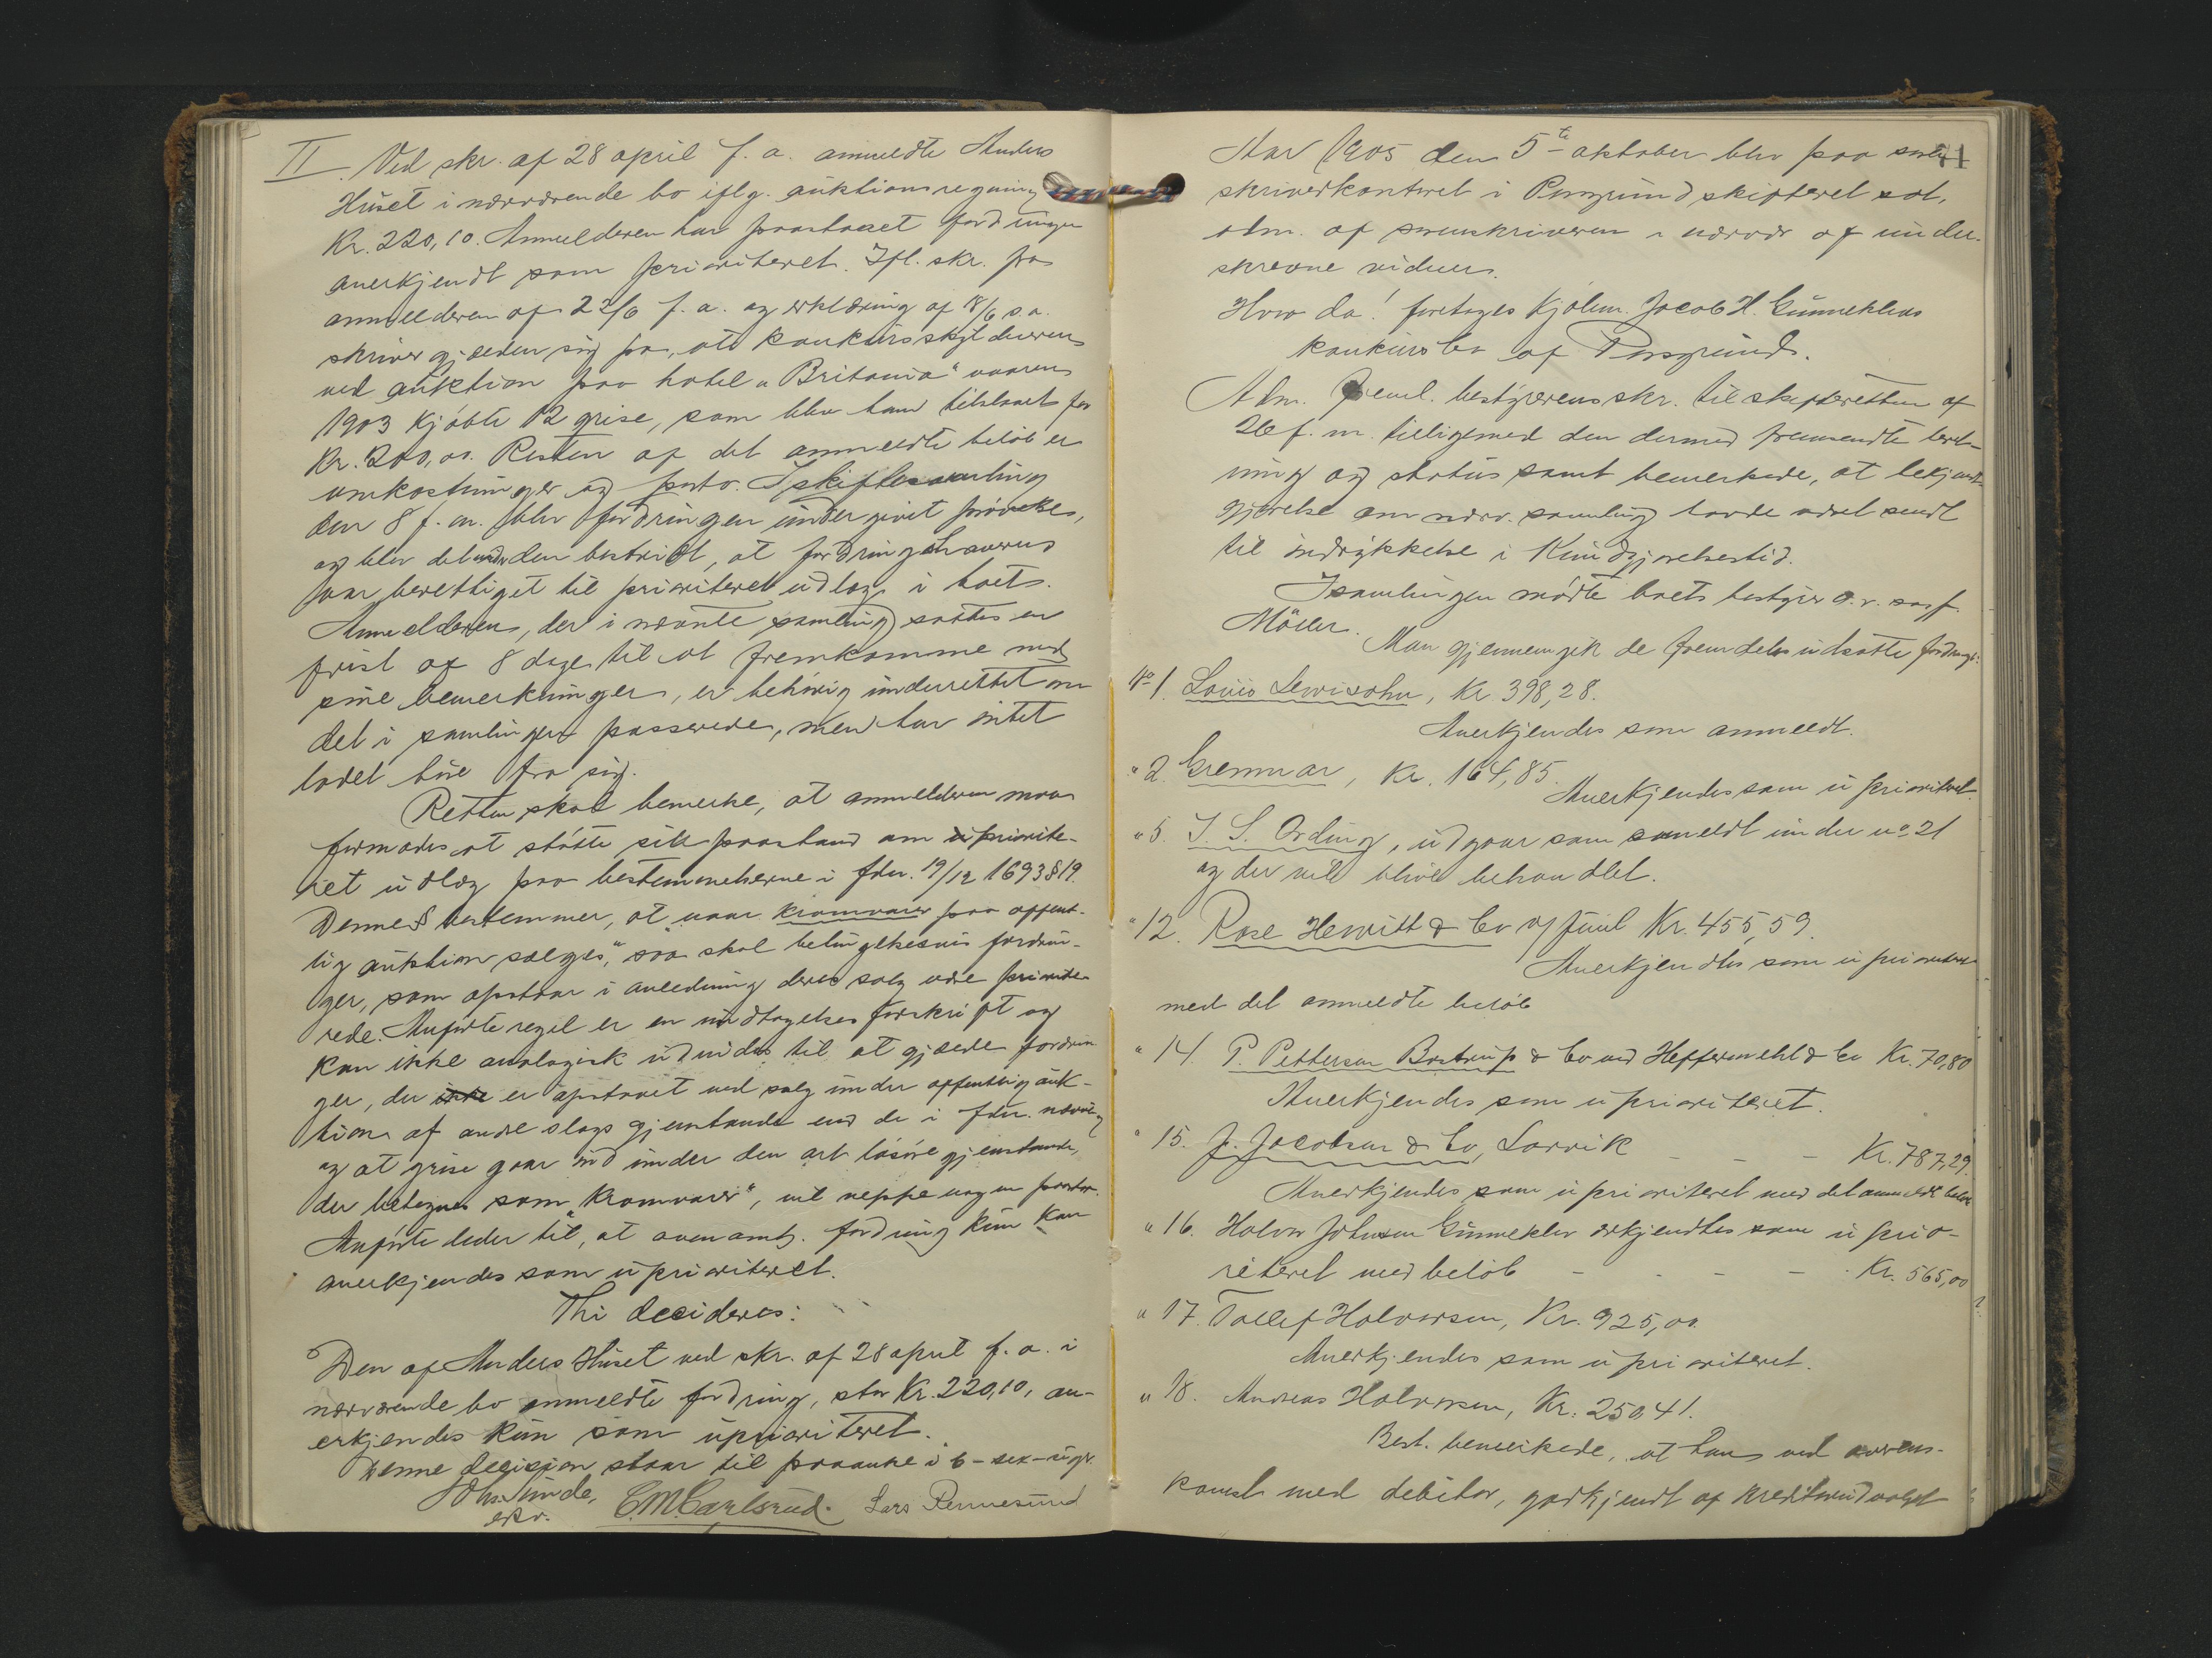 II. Ved skr. af 28 april f. a. anmeldte Anders
Huset i nærværende bo iflg. auktionsregning
Kr. 220,10. Anmelderen har paastaaet fordringen
anerkjendt som prioriteret. Ifl. skr. fra
anmelderen af 22/6 f. a. og erklæring af 18/6 s. a.
skriver gjælden sig fra, at konkursskyldneren
ved auktion paa hotel "Britania" vaaren
1903 kjøbte 12 grise, som blev ham tilslaaet for
Kr. 200,00. Resten af det anmeldte beløb er
omkostninger og porto. I skiftesamling
den 8 f. m. blev fordringen undergivet prøvelse,
og blev det under den bestridt, at fordringshaveren
var berettiget til prioriteret udlæg i boet.
Anmelderen, der i nævnte samling sattes en
frist af 8 dage til at fremkomme med
sine bemerkninger, er behørig underrettet om
det i samlingen passerede, men har intet
ladet høre fra sig.
Retten skal bemerke, at anmelderen maa
formodes at støtte sin paastand om priorite-
ret udlæg paa bestemmelserne i fdn. 19/12 1693 § 19.
Denne § bestemmer, at naar kramvarer paa offent-
lig auktion sælges", saa skal betingelsesvis fordrin-
ger, som opstaar i anledning deres salg være priorite-
rede. Anførte regel er en undtagelsesforskrift og
kan ikke analogisk udvides til at gjælde fordrin
ger, der er opstaaet ved salg under offentlig auk-
tion af andre slags gjenstande end de i fdn. nævnte
og at grise gaar ind under den art løsøregjenstande,
der betegnes som "Kramvarer", vil neppe nogen paastaa.
Anførte leder til, at ovenomh. fordring kun kan
anerkjendes som uprioriteret.
Thi decideres:
Den af Anders Huset ved skr. af 28 april f. a. i
nærværende bo anmeldte fordring, stor Kr. 220,10, an-
erkjendes kun som uprioriteret.
Denne decision staar til paaanke i 6 - sex - uger.
C. M. Carlsrud. Lars Rennesund
41
Aar 1905 den 5te oktober blev paa soren
skriverkontoret i Porsgrund skifteret sat,
adm. af sorenskriveren i nærvær af under-
skrevne vidner.
Hvor da! foretages kjøbm. Jacob H. Gunneklevs
konkursbo af Porsgrund.
Adm. freml. bestyrerens skr. til skifteretten af
26 f. m. tilligemed den dermed fremsendte beret-
ning og status samt bemerkede, at bekjendt-
gjørelse om nærv. samling havde været sendt
til indrykkelse i Kundgjørelsestid.
I samlingen mødte boets bestyrer o.r. sagf.
Möller.
Man gjennemgik de fremdeles udsatte fordringer:
No 1. Louis Lewisohn, Kr. 398,28.
Anerkjendes som anmeldt.
" 2. Gremmar, Kr. 164,85.
Anerkjendes som uprioriteret.
" 5. J. S. Ording, udgaar som anmeldt under no 21
og der vil blive behandlet.
" 12. Rose Hewitt & Co v/ Juul Kr. 455,59.
Anerkjendtes som uprioriteret
med det anmeldte beløb
" 14. P. Petterson Bastrup & Co ved Heffermehl & Co Kr. 70,80
Anerkjendes som uprioriteret.
" 15. J. Jacobsen & Co, Larvik - - - Kr. 787,29.
Anerkjendes som uprioriteret med det anmeldte beløb
" 16. Halvor Johnsen Gunneklev erkjendtes som uprio-
riteret med beløb - - - - Kr. 565,00
" 17. Tollef Halvorsen, Kr. 925,00.
Anerkjendes som uprioriteret.
" 18. Andreas Halvorsen, Kr. 250,41.
Best. bemerkede, at han ved overens-
komst med debitor, godkjendt af kreditorudvalget